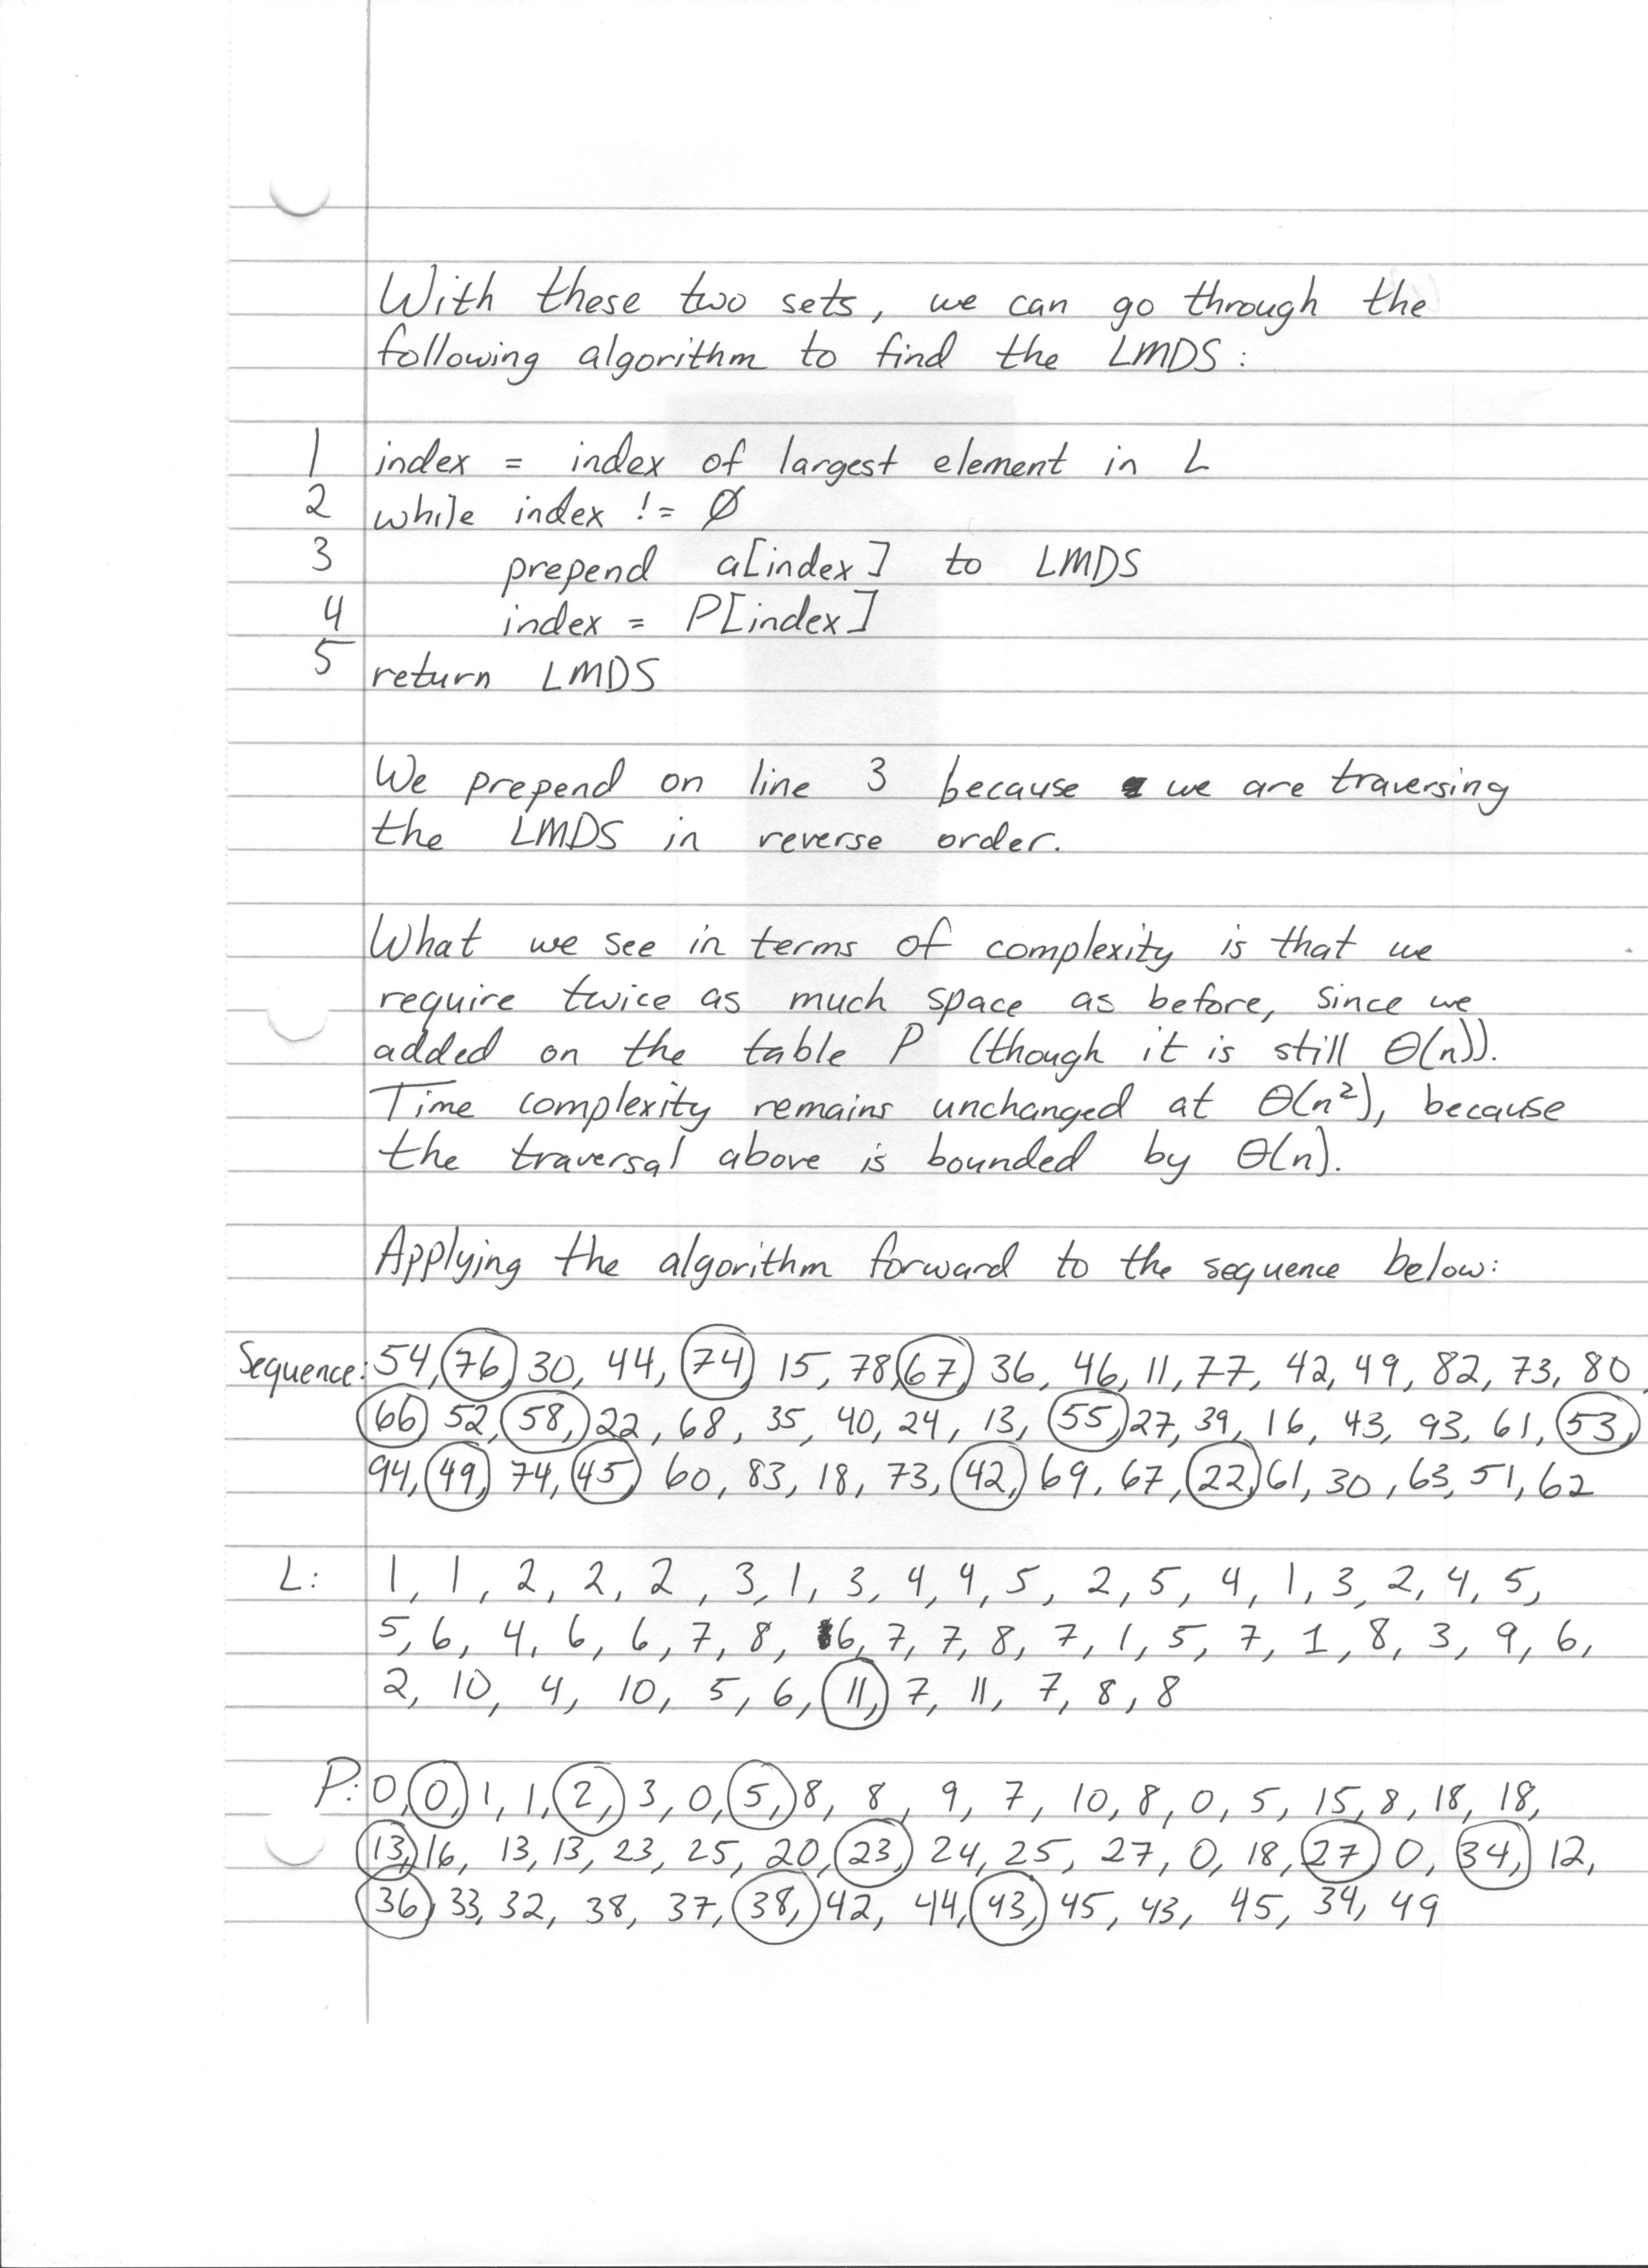 With these two sets, we can go through the
following algorithm to find the LMDS:
1 index = index of largest element in L
2 while index != Ø
3 prepend a[index] to LMDS
4 index = P[index]
5 return LMDS
We prepend on line 3 because we are traversing
the LMDS in reverse order.
What we see in terms of complexity is that we
require twice as much space as before, since we
added on the table P (though it is still Θ(n)).
Time complexity remains unchanged at Θ(n²), because
the traversal above is bounded by Θ(n).
Applying the algorithm forward to the sequence below:
Sequence: 54, 76, 30, 44, 74, 15, 78, 67, 36, 46, 11, 77, 42, 49, 82, 73, 80,
66, 52, 58, 22, 68, 35, 40, 24, 13, 55, 27, 39, 16, 43, 93, 61, 53,
94, 49, 74, 45, 60, 83, 18, 73, 42, 69, 67, 22, 61, 30, 63, 51, 62
L: 1, 1, 2, 2, 2, 3, 1, 3, 4, 4, 5, 2, 5, 4, 1, 3, 2, 4, 5,
5, 6, 4, 6, 6, 7, 8, 6, 7, 7, 8, 7, 1, 5, 7, 1, 8, 3, 9, 6,
2, 10, 4, 10, 5, 6, 11, 7, 11, 7, 8, 8
P: 0, 0, 1, 1, 2, 3, 0, 5, 8, 8, 9, 7, 10, 8, 0, 5, 15, 8, 18, 18,
13, 16, 13, 13, 23, 25, 20, 23, 24, 25, 27, 0, 18, 27, 0, 34, 12,
36, 33, 32, 38, 37, 38, 42, 44, 43, 45, 43, 45, 34, 49